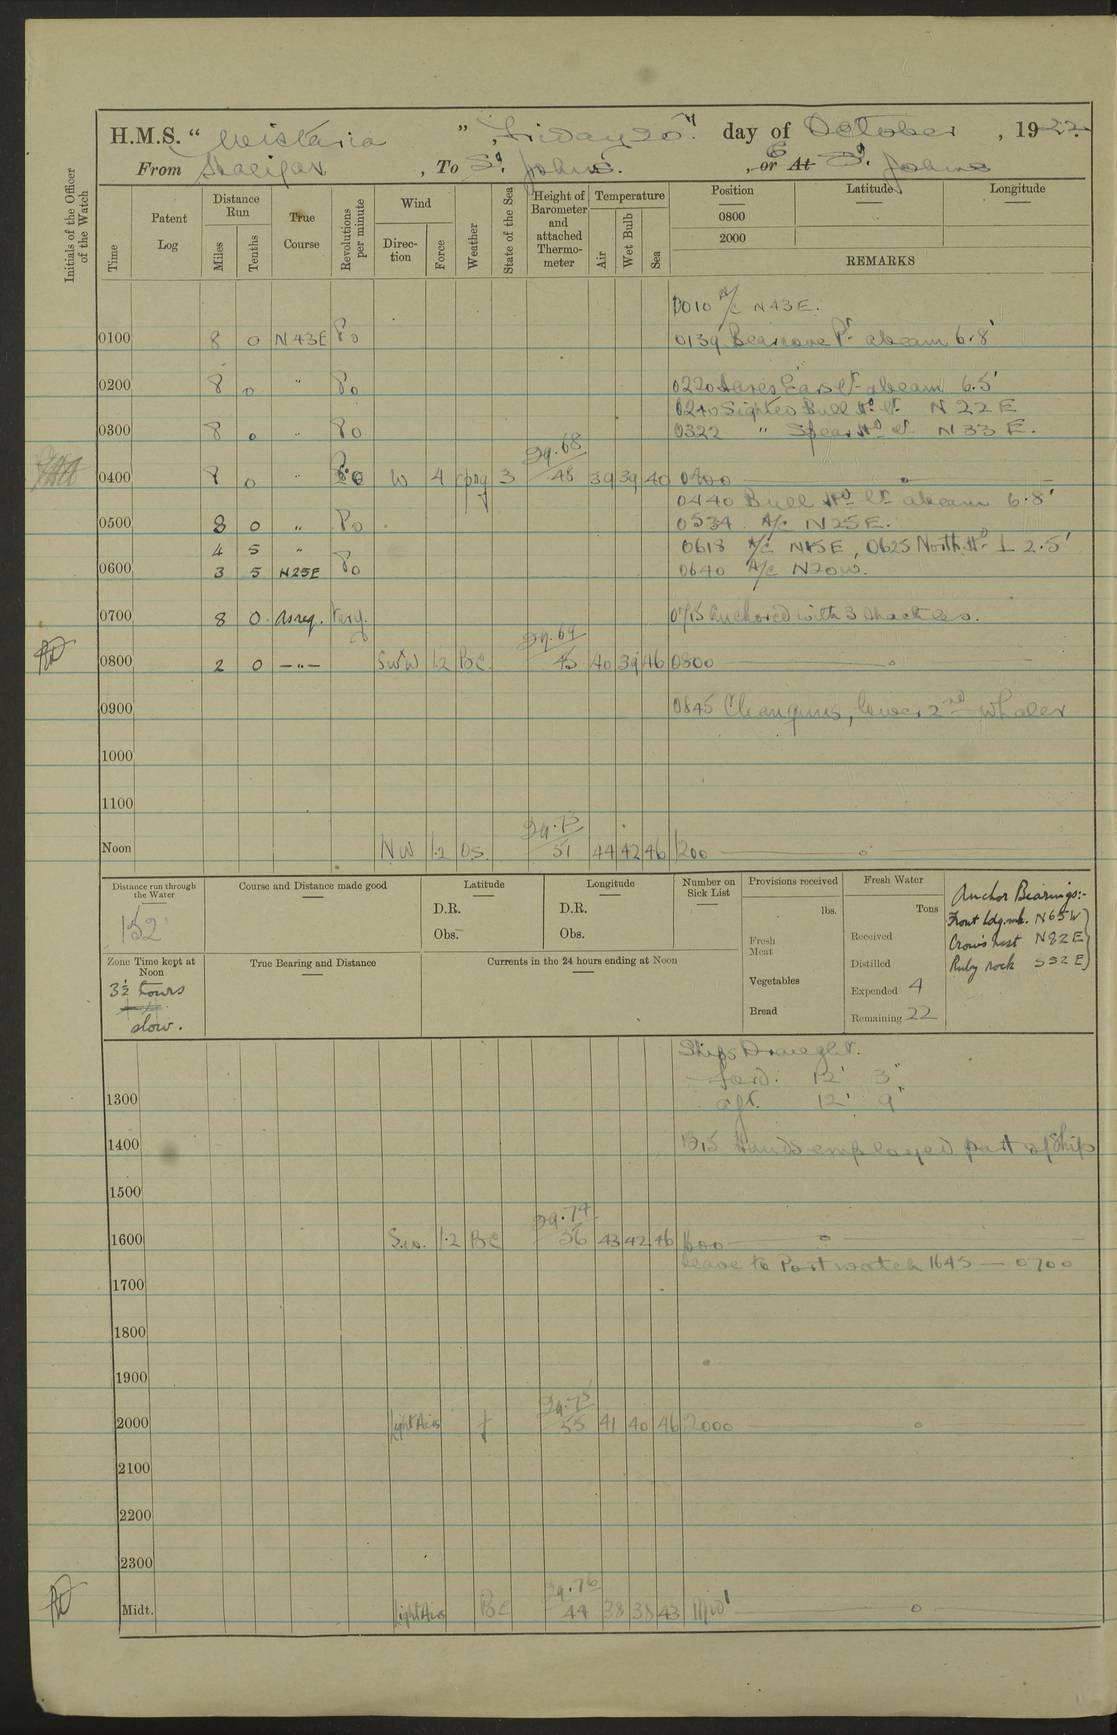 H.M.S. "Wistaria", Friday 20th day of October, 1922.
From Halifax, To St. Johns., or At St. Johns
Initials of the Officer of the Watch
Time
Patent Log
Distance Run
Miles
Tenths
True Course
Revolutions per minute
Wind
Direction
Force
Weather
State of the Sea
Height of Barometer and attached Thermometer
Temperature
Air
Wet Bulb
Sea
Position Latitude Longitude
0800
2000
REMARKS
0010 A/c N43E.
0100 8 0 N43E 80 0139 Bearcove Pt. abeam 6.8'
0200 8 0 " 80 0220 Hares Ears Lt. abeam 6.5'
0240 Sighted Bull Hd. Lt. N22E
0300 8 0 " 80 0322 " Spear Hd. Lt. N33E.
29.68
0400 8 0 " 80 W 4 3 45 39 39 40 0400
0440 Bull Hd. Lt. abeam 6.8'
0500 8 0 " 80 0534 A/c N25E.
4 5 " 0618 A/c N15E, 0625 North Hd. ⊥ 2.5'
0600 3 5 N25E 80 0640 A/c N20W.
0700 8 0 As req. Varg. 0715 Anchored with 3 shackles.
29.69
0800 2 0 —"— SW'W 1.2 BC 45 40 39 46 0800
0900 0845 Clean guns, lower 2nd whaler
1000
1100
29.73
Noon NW 1.2 O.S. 51 44 42 46 1200
Distance run through the Water
152
Course and Distance made good
Latitude
D.R.
Obs.
Longitude
D.R.
Obs.
Number on Sick List
Provisions received
lbs.
Fresh Meat
Vegetables
Bread
Fresh Water
Tons
Received
Distilled
Expended 4
Remaining 22
Anchor Bearings:-
Front ldg. mk. N65W
Crow's nest N82E
Ruby rock S32E
Zone Time kept at Noon
3½ hours
slow.
True Bearing and Distance
Currents in the 24 hours ending at Noon
Ships Draught.
ford. 12' 3"
1300 aft. 12' 9"
1400 1315 Hands employed part of ship
1500
29.74
1600 S.W. 1.2 BC 56 43 42 46 1600
Leave to Port watch 1645 — 0700
1700
1800
1900
29.75
2000 Light Airs f 55 41 40 46 2000
2100
2200
2300
29.76
Midt. Light Airs BC 44 38 38 43 Mid'